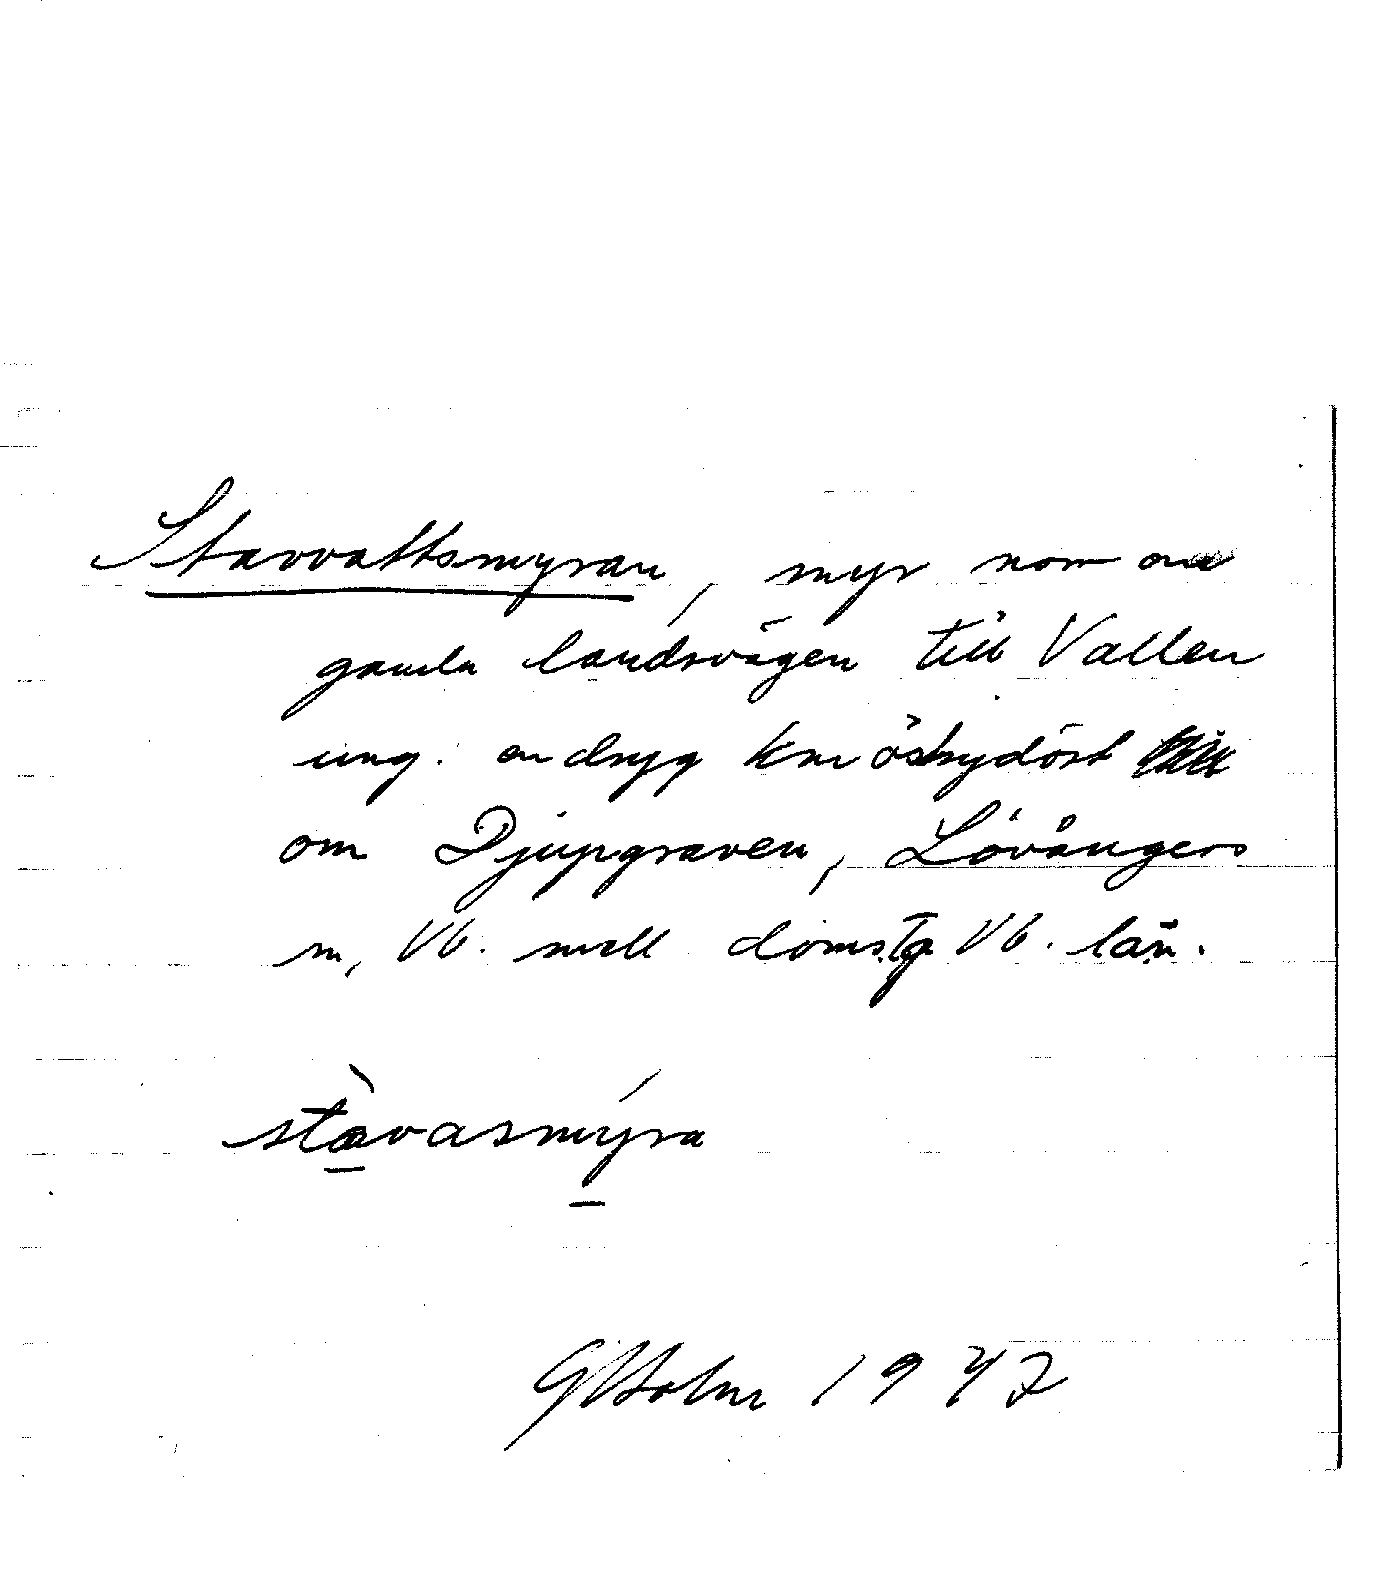 Stavvattsmyran, myr norr om
gamla landsvägen till Vallen
ung. en dryg km östsydöst
om Djupgraven, Lövångers
sn, Vb. mell domsg Vb. län.
stavasmýra
GHolm 1947